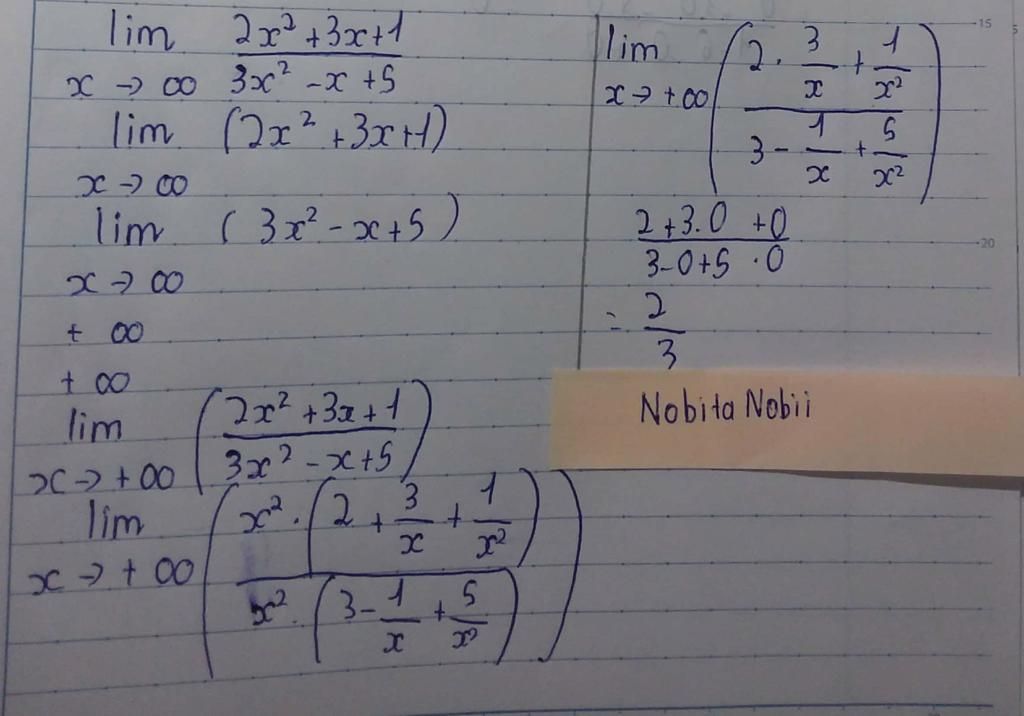 lim 2x² + 3x + 1
x → ∞ 3x² - x + 5
lim (2x² + 3x + 1)
x → ∞
lim (3x² - x + 5)
x → ∞
+ ∞
+ ∞
lim (2x² + 3x + 1
x → +∞ 3x² - x + 5)
lim (x² · (2 + 3/x + 1/x²)
x → +∞ x² · (3 - 1/x + 5/x²))
lim (2 · 3/x + 1/x²
x → +∞ 3 - 1/x + 5/x²)
2 + 3.0 + 0
3 - 0 + 5 · 0
= 2
3
Nobita Nobii
15
20